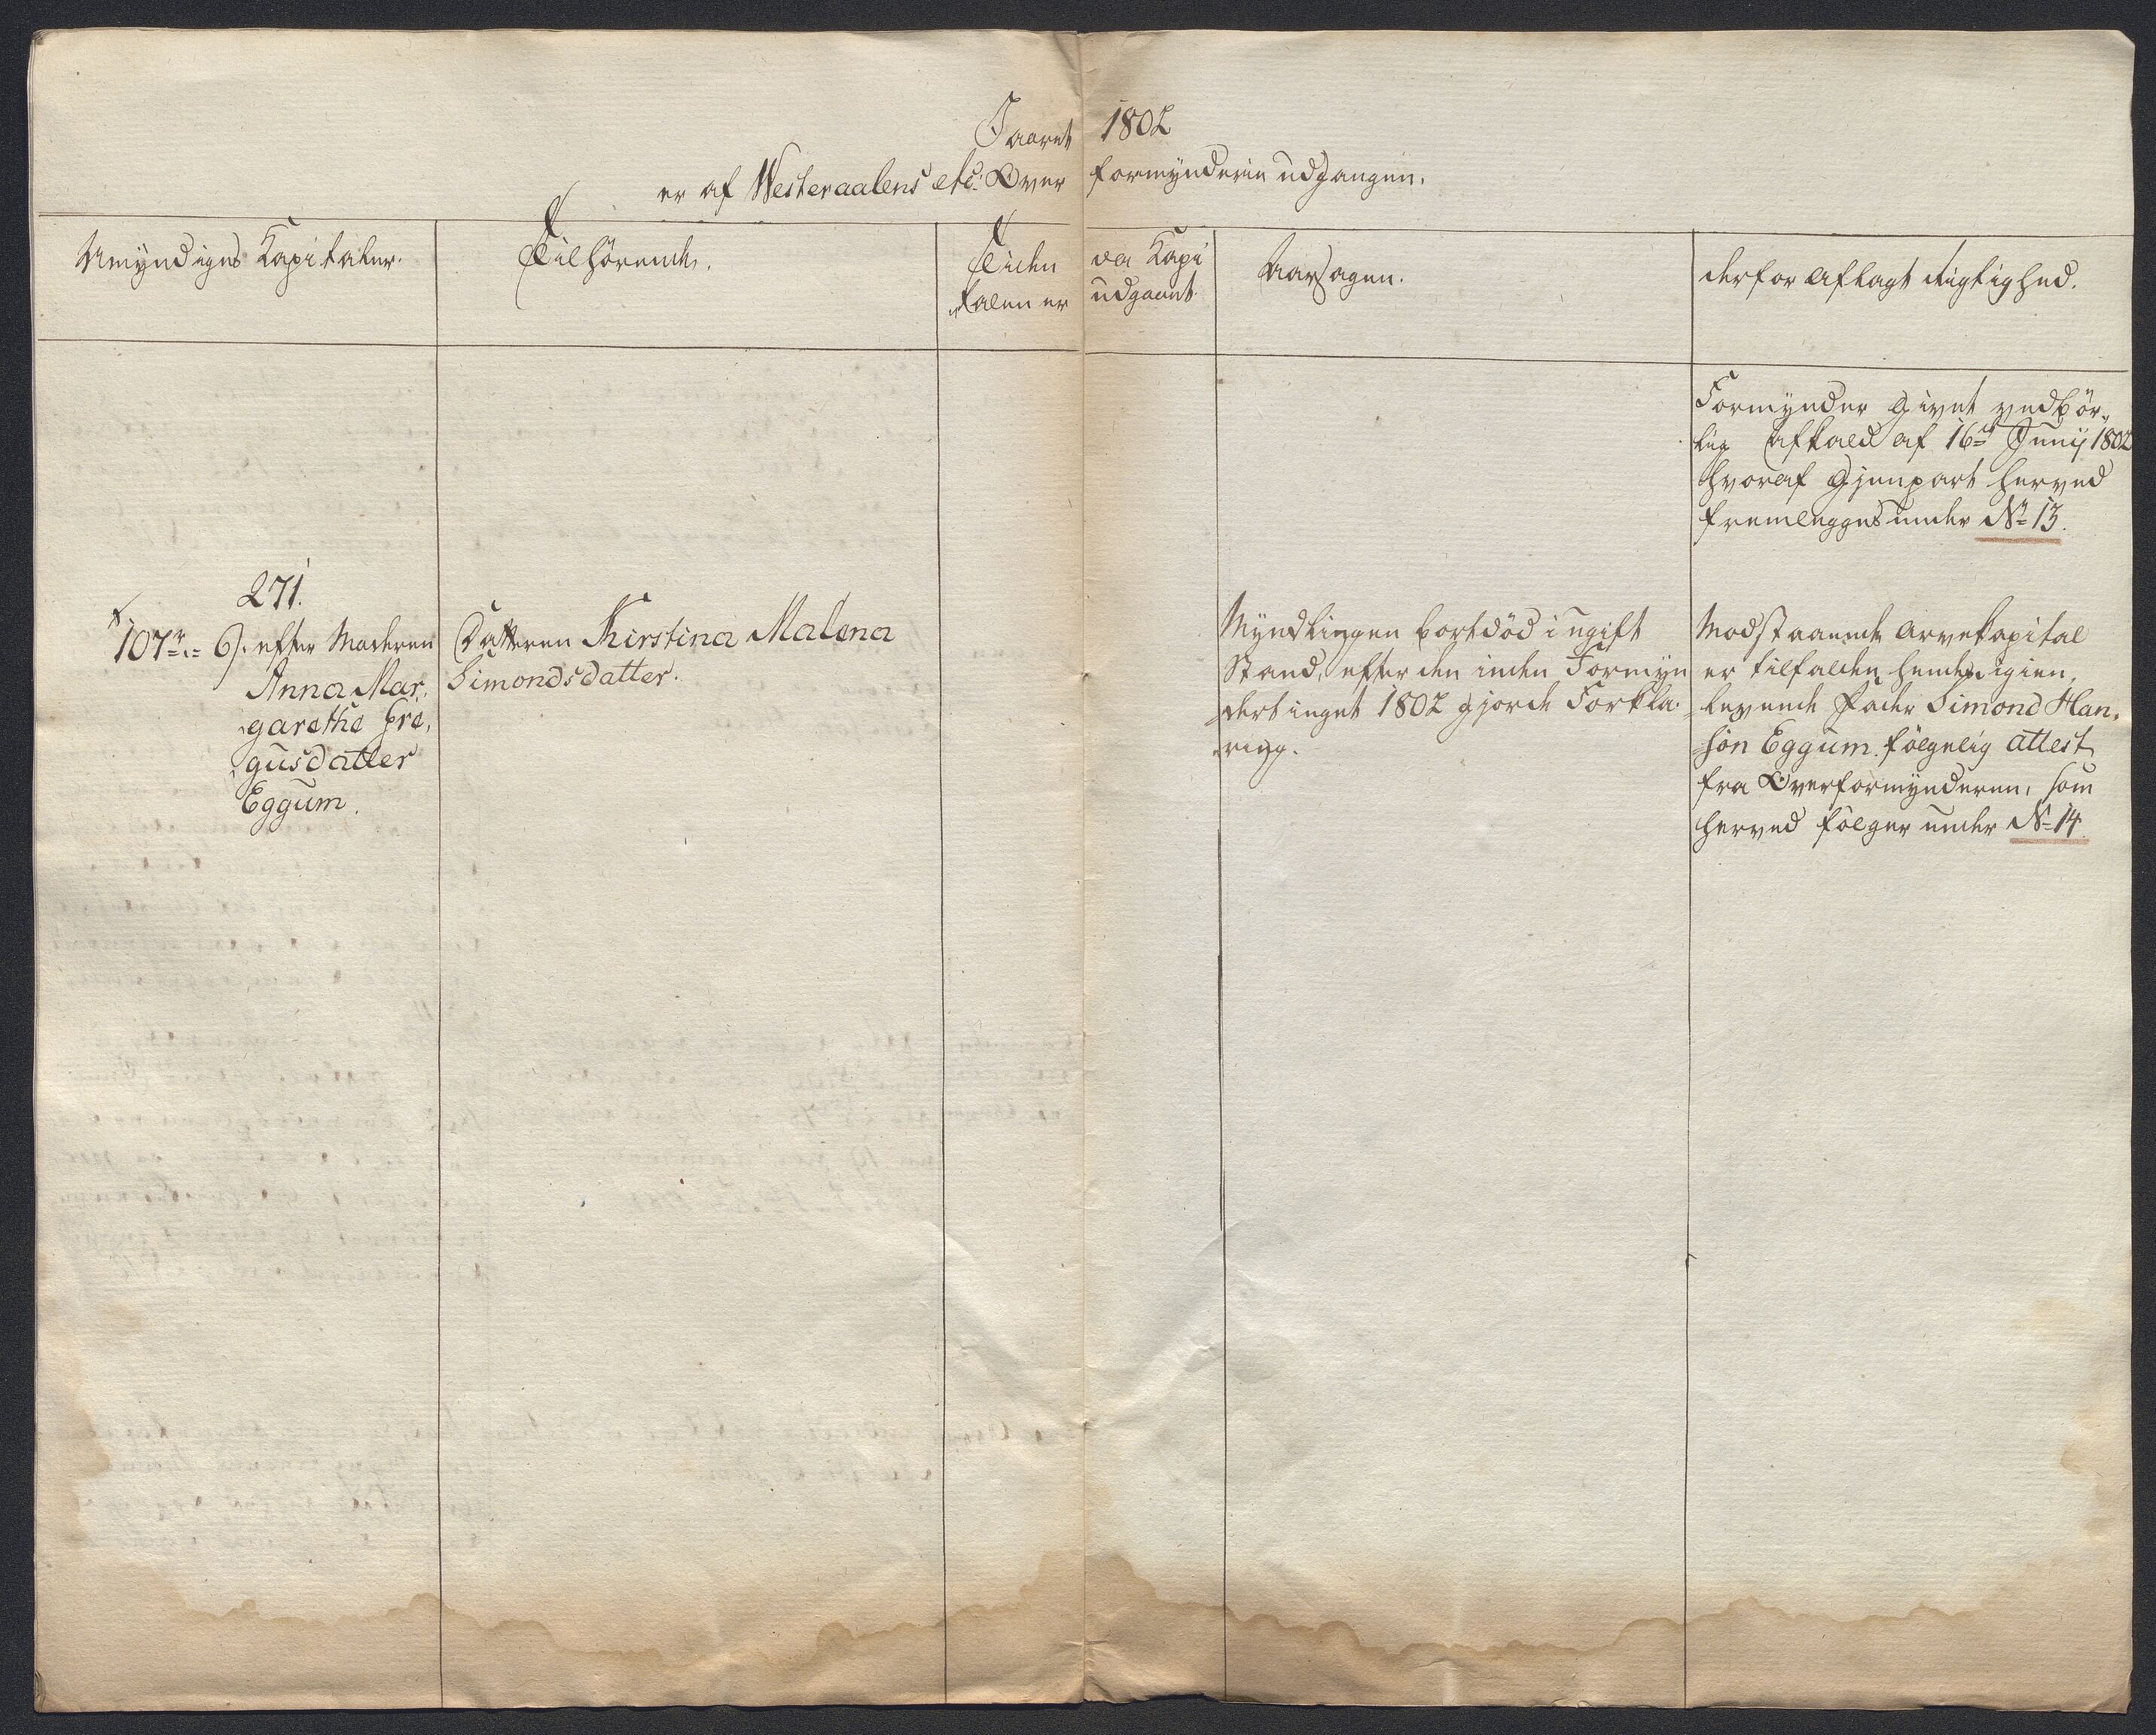 I aaret 1802
er af Westeraalens etc: Over formynderie udgangen.
Umyndiges Kapitaler.
Tilhörende.
Tiden da Kapi
talen er udgaaet.
Aarsagen.
derfor aflagt Rigtighed.
Formynder givet vedbör-
lig Afkald af 16de Junij 1802
hvoraf Gjenpart herved
fremlegges under No 13.
271.
107 r. 6 s. efter Moderen
Anna Mar-
garethe Gre-
gusdatter
Eggum.
Datteren Kirstina Malena
Simondsdatter.
Myndlingen bortdöd i ugift
Stand, efter den inden Formyn
dertinget 1802 gjorde Forkla-
ring.
Modstaaende Arvekapital
er tilfalden hendes igien-
levende Fader Simond Han-
sön Eggum fölgelig Attest
fra Overformynderen, som
herved fölger under No 14